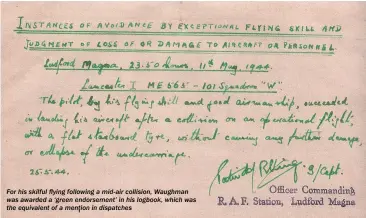 INSTANCES OF AVOIDANCE BY EXCEPTIONAL FLYING SKILL AND
JUDGMENT OF LOSS OF OR DAMAGE TO AIRCRAFT OR PERSONNEL
Ludford Magna, 23.50 hours, 11th May 1944.
Lancaster I ME 565 - 101 Squadron "W"
The pilot, by his flying skill and good airmanship, succeeded
in landing his aircraft after a collision on an operational flight,
with a flat starboard tyre, without causing any further damage,
or collapse of the undercarriage.
25.5.44.
G/Capt.
Officer Commanding
R.A.F. Station, Ludford Magna
For his skilful flying following a mid-air collision, Waughman
was awarded a 'green endorsement' in his logbook, which was
the equivalent of a mention in dispatches